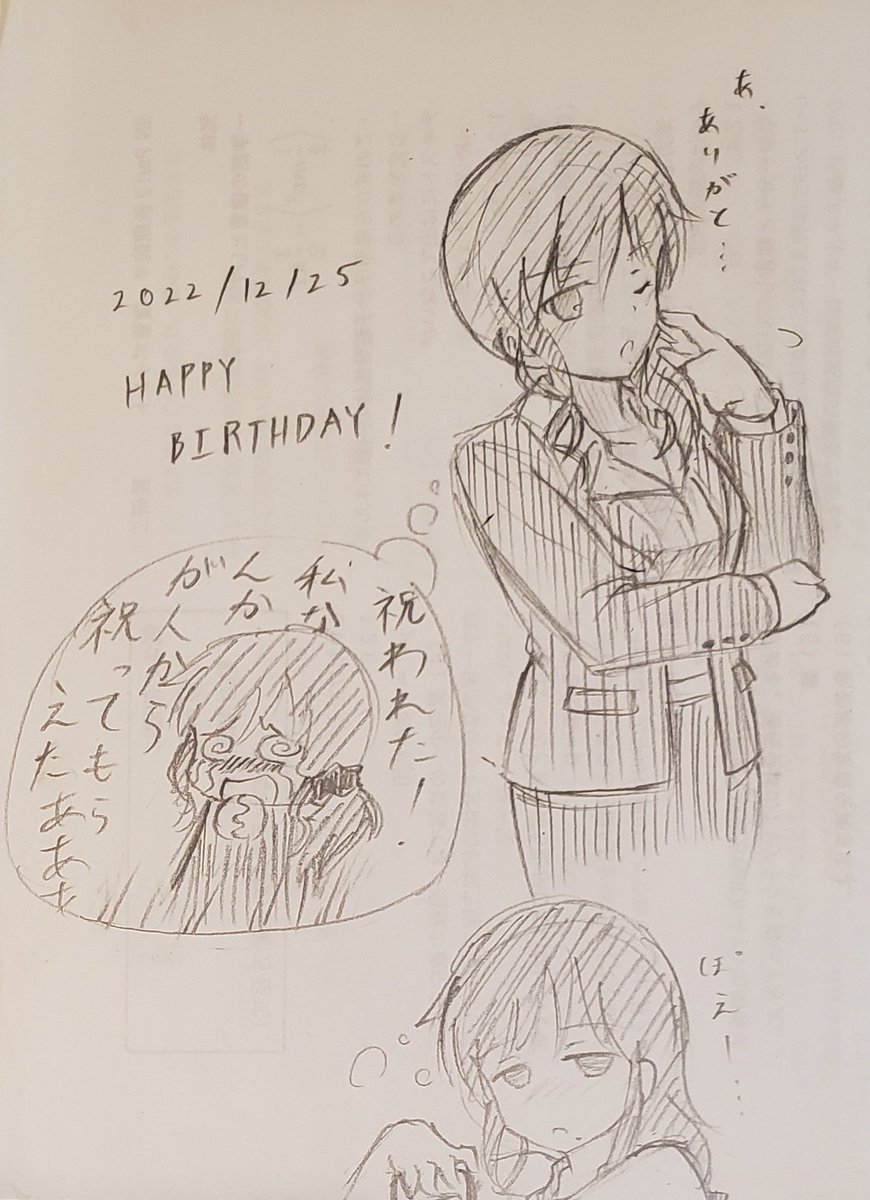 あ、
ありがと…
2022/12/25
HAPPY
BIRTHDAY!
祝われた!
私な
んか
が人から
祝ってもら
えたあああ
ぽえー…